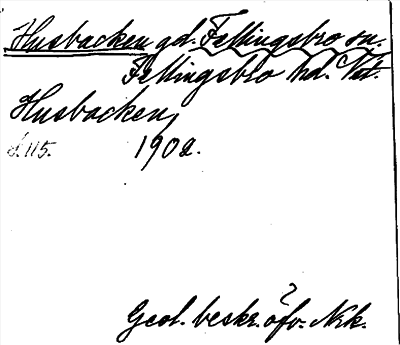 Husbacken gd. Fellingsbro sn.
Fellingsbro hd. Vstl.
Husbacken,
s. 115. 1902.
?
Geol. beskr. öfv. Nrk.